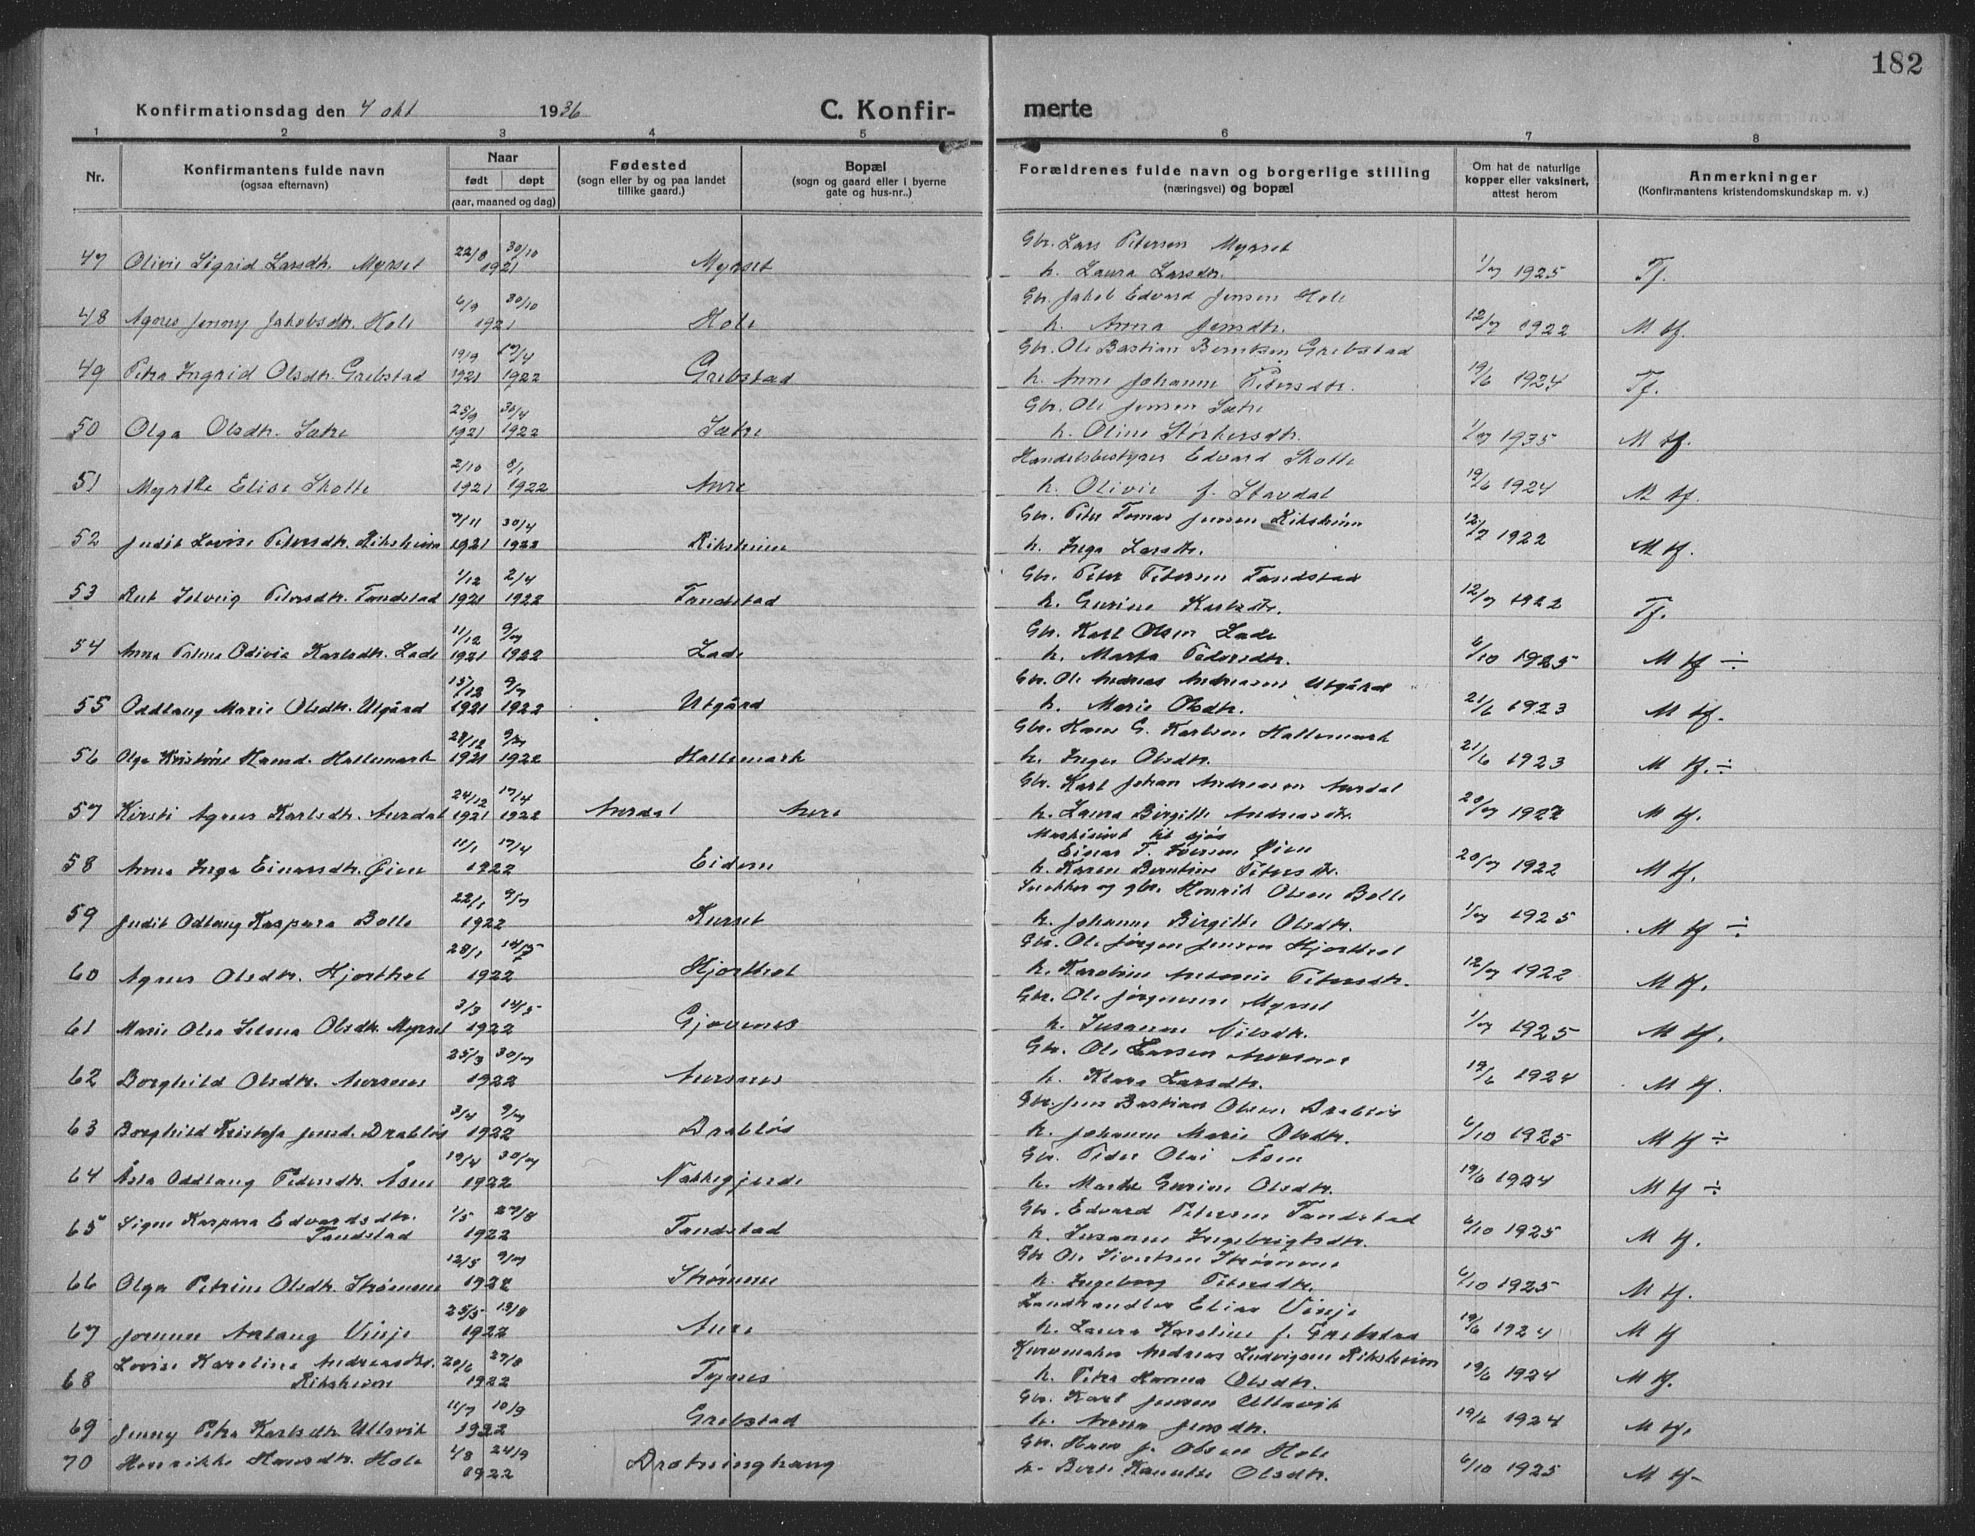 182
Konfirmationsdag den 4 okt 1936 C. Konfir- merte
1 2 3 4 5 6 7 8
Nr. Konfirmantens fulde navn (ogsaa efternavn) Naar født døpt (aar, maaned og dag) Fødested (sogn eller by og paa landet tillike gaard.) Bopæl (sogn og gaard eller i byerne gate og hus-nr..) Forældrenes fulde navn og borgerlige stilling (næringsvei) og bopæl Om hat de naturlige kopper eller vaksinert, attest herom Anmerkninger (Konfirmantens kristendomskundskap m. v.)
47 Olivie Sigrid Larsdtr. Myrset 22/8 30/10 1921 Myrset Gbr. Lars Petersen Myrset
h. Laura Larsdtr. 1/7 1925 Tf.
48 Agnes Jenny Jakobsdtr. Hole 6/9 30/10 1921 Hole Gbr. Jakob Edvard Jensen Hole
h. Anna Jensdtr. 12/7 1922 M tf.
49 Petra Ingrid Olsdtr. Grebstad 19/9 1921 17/4 1922 Grebstad Gbr. Ole Bastian Berntsen Grebstad
h. Anne Johanne Petersdtr. 19/6 1924 Tf.
50 Olga Olsdtr. Sætre 25/9 1921 30/4 1922 Sætre Gbr. Ole Jensen Sætre
h. Oline Størkersdtr. 1/7 1935 M tf.
51 Myrtle Elise Skotte 2/10 1921 8/1 1922 Aure Handelsbestyrer Edvard Skotte
h. Olivie f. Stavdal 19/6 1924 M tf.
52 Judit Lovise Petersdtr. Riksheim 7/11 1921 30/4 1922 Riksheim Gbr. Peter Tomas Jensen Riksheim
h. Inga Larsdtr. 12/7 1922 M tf.
53 Rut Solveig Petersdtr. Tandstad 1/12 1921 2/4 1922 Tandstad Gbr. Peter Petersen Tandstad
h. Gurine Karlsdtr. 12/7 1922 Tf.
54 Anna Palma Odivia Karlsdtr. Lade 11/12 1921 9/7 1922 Lade Gbr. Karl Olsen Lade
h. Marta Pedersdtr. 6/10 1925 M tf ÷
55 Oddlaug Marie Olsdtr. Utgård 15/12 1921 9/7 1922 Utgård Gbr. Ole Andreas Andreassen Utgård
h. Marie Olsdtr. 21/6 1923 M tf.
56 Olga Kristine Hansd. Hallemark 28/12 1921 9/7 1922 Hallemark Gbr. Hans G. Karlsen Hallemark
h. Inger Olsdtr. 21/6 1923 M tf. ÷
57 Kirsti Agnes Karlsdtr. Aurdal 24/12 1921 17/4 1922 Aurdal Aure Gbr. Karl Johan Andreassen Aurdal
h. Laura Birgitte Andreasdtr. 20/7 1922 M tf.
58 Anna Inga Einarsdtr. Øien 11/1 17/4 1922 Eidem Maskinist til sjøs
Einar T. Iversen Øien
h. Karen Berntine Petersdtr. 20/7 1922 M tf.
59 Judit Odlaug Kaspara Bolle 22/1 9/7 1922 Kurset Snekker og gbr. Henrik Olsen Bolle
h. Johanne Birgitte Olsdtr. 1/7 1925 M tf ÷
60 Agnes Olsdtr. Hjorthol 28/1 14/5 1922 Hjorthol Gbr. Ole Jørgen Jensen Hjorthol
h. Karoline Antonie Petersdtr. 12/7 1922 M tf.
61 Marie Olea Selma Olsdtr. Myrset 3/3 14/5 1922 Gjævenes Gbr. Ole Jørgensen Myrset
h. Susanne Nilsdtr. 1/7 1925 M tf.
62 Borghild Olsdtr. Aursnes 25/3 30/7 1922 Aursnes Gbr. Ole Larsen Aursnes
h. Klara Larsdtr. 19/6 1924 M tf.
63 Borghild Kristofa Jensd. Drabløs 3/4 9/7 1922 Drabløs Gbr. Jens Bastian Olsen Drabløs
h. Johanne Marie Olsdtr. 6/10 1925 M tf ÷
64 Åsta Oddlaug Pedersdtr. Åsen 19/4 30/7 1922 Nakkegjerde Gbr. Peder Olai Åsen
h. Marte Gurine Olsdtr. 19/6 1924 M tf ÷
65 Signe Kaspara Edvardsdtr.
Tandstad 1/5 27/8 1922 Tandstad Gbr. Edvard Petersen Tandstad
h. Susanne Ingebrigtsdtr. 6/10 1925 M tf.
66 Olga Petrine Olsdtr. Strømme 12/5 9/7 1922 Strømme Gbr. Ole Sivertsen Strømme
h. Ingeborg Petersdtr. 6/10 1925 M tf.
67 Aslaug Vinje 25/5 13/8 1922 Aure Landhandler Elias Vinje
h. Laura Karoline f. Grebstad 19/6 1924 M tf
68 Lovise Karoline Andreasdtr.
Riksheim 20/6 27/8 1922 Tynes Kurvmaker Andreas Ludvigsen Riksheim
h. Petra Hanna Olsdtr. 19/6 1924 M tf.
69 Jenny Petra Karlsdtr. Ullavik 11/7 10/9 1922 Grebstad Gbr. Karl Jensen Ullavik
h. Anna Jensdtr. 19/6 1924 M tf.
70 Henrikke Hansdtr. Hole 4/8 24/9 1922 Drotninghaug Gbr. Hans J. Olsen Hole
h. Berte Olsdtr. 6/10 1925 M tf